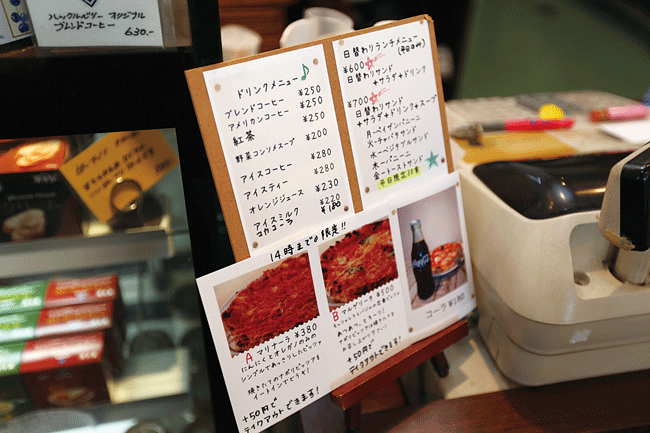 ハックルベリー オリジナル
ブレンドコーヒー 630.-
ドリンクメニュー♪
ブレンドコーヒー ¥250
アメリカンコーヒー ¥250
紅茶 ¥250
野菜コンソメスープ ¥200
アイスコーヒー ¥280
アイスティー ¥280
オレンジジュース ¥230
アイスミルク ¥220
コカコーラ ¥180
日替わりランチメニュー
(平日のみ)
¥600
日替わりサンド
+サラダ+ドリンク
¥700
日替わりサンド
+サラダ+ドリンク+スープ
月-ペイザンバーニュ
火-チャバタサンド
水-ベジタブルサンド
木-パニーニ
金-トーストサンド
平日限定20食
14時までの限定!!
A マリナーラ ¥380
にんにくとオレガノのみの
シンプルであっさりしたピッツァ
焼きたてのナポリピッツァを
イートインでどうぞ!
+50円で
テイクアウトできます!
B マルゲリータ ¥500
あつあつ、とろーり!
お召し上がり下さい
+50円で
テイクアウトできます!
Coca-Cola
コーラ ¥180